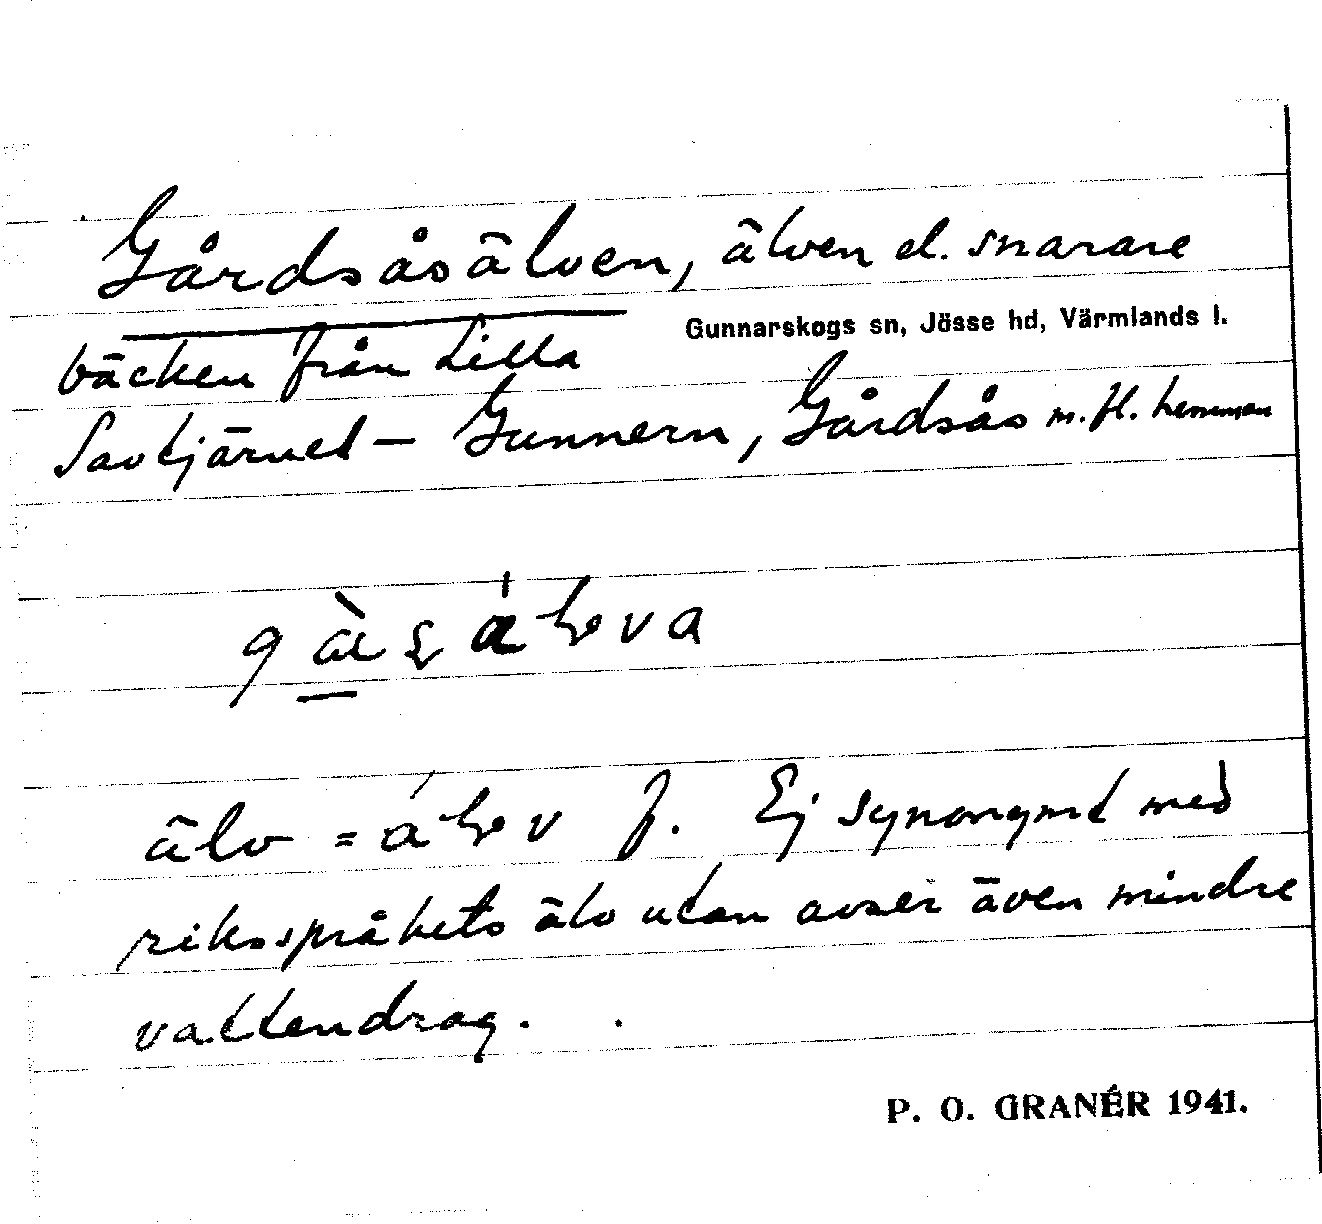 Gårdsåsälven, älven el. snarare
Gunnarskogs sn, Jösse hd, Värmlands l.
bäcken från Lilla
Savtjärnet – Gunnern, Gårdsås m. fl. hemman
älv = f. Ej synonymt med
riksspråkets älv utan avser även mindre
vattendrag.
P. O. GRANÉR 1941.